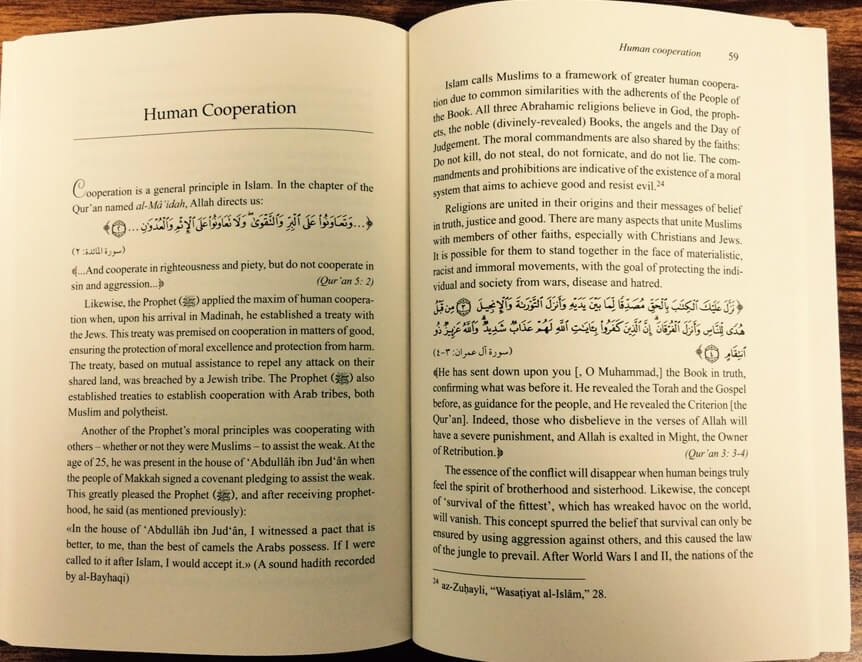 Human Cooperation
Cooperation is a general principle in Islam. In the chapter of the
Qur'an named al-Mâ'idah, Allah directs us:
﴿...وَتَعَاوَنُوا۟ عَلَى ٱلْبِرِّ وَٱلتَّقْوَىٰ ۖ وَلَا تَعَاوَنُوا۟ عَلَى ٱلْإِثْمِ وَٱلْعُدْوَٰنِ ... ٢﴾
(سورة المائدة: ٢)
﴾...And cooperate in righteousness and piety, but do not cooperate in
sin and aggression...﴿ (Qur'an 5: 2)
Likewise, the Prophet (ﷺ) applied the maxim of human coopera-
tion when, upon his arrival in Madinah, he established a treaty with
the Jews. This treaty was premised on cooperation in matters of good,
ensuring the protection of moral excellence and protection from harm.
The treaty, based on mutual assistance to repel any attack on their
shared land, was breached by a Jewish tribe. The Prophet (ﷺ) also
established treaties to establish cooperation with Arab tribes, both
Muslim and polytheist.
Another of the Prophet's moral principles was cooperating with
others – whether or not they were Muslims – to assist the weak. At the
age of 25, he was present in the house of 'Abdullâh ibn Jud'ân when
the people of Makkah signed a covenant pledging to assist the weak.
This greatly pleased the Prophet (ﷺ), and after receiving prophet-
hood, he said (as mentioned previously):
«In the house of 'Abdullâh ibn Jud'ân, I witnessed a pact that is
better, to me, than the best of camels the Arabs possess. If I were
called to it after Islam, I would accept it.» (A sound hadith recorded
by al-Bayhaqi)
Human cooperation 59
Islam calls Muslims to a framework of greater human coopera-
tion due to common similarities with the adherents of the People of
the Book. All three Abrahamic religions believe in God, the proph-
ets, the noble (divinely-revealed) Books, the angels and the Day of
Judgement. The moral commandments are also shared by the faiths:
Do not kill, do not steal, do not fornicate, and do not lie. The com-
mandments and prohibitions are indicative of the existence of a moral
system that aims to achieve good and resist evil.24
Religions are united in their origins and their messages of belief
in truth, justice and good. There are many aspects that unite Muslims
with members of other faiths, especially with Christians and Jews.
It is possible for them to stand together in the face of materialistic,
racist and immoral movements, with the goal of protecting the indi-
vidual and society from wars, disease and hatred.
﴿نَزَّلَ عَلَيْكَ ٱلْكِتَٰبَ بِٱلْحَقِّ مُصَدِّقًا لِّمَا بَيْنَ يَدَيْهِ وَأَنزَلَ ٱلتَّوْرَىٰةَ وَٱلْإِنجِيلَ ٣ مِن قَبْلُ
هُدًى لِّلنَّاسِ وَأَنزَلَ ٱلْفُرْقَانَ ۗ إِنَّ ٱلَّذِينَ كَفَرُوا۟ بِـَٔايَٰتِ ٱللَّهِ لَهُمْ عَذَابٌ شَدِيدٌ ۗ وَٱللَّهُ عَزِيزٌ ذُو
ٱنتِقَامٍ ٤﴾ (سورة آل عمران: ٣-٤)
﴾He has sent down upon you [, O Muhammad,] the Book in truth,
confirming what was before it. He revealed the Torah and the Gospel
before, as guidance for the people, and He revealed the Criterion [the
Qur'an]. Indeed, those who disbelieve in the verses of Allah will
have a severe punishment, and Allah is exalted in Might, the Owner
of Retribution.﴿ (Qur'an 3: 3-4)
The essence of the conflict will disappear when human beings truly
feel the spirit of brotherhood and sisterhood. Likewise, the concept
of 'survival of the fittest', which has wreaked havoc on the world,
will vanish. This concept spurred the belief that survival can only be
ensured by using aggression against others, and this caused the law
of the jungle to prevail. After World Wars I and II, the nations of the
24 az-Zuḥayli, "Wasaṭiyat al-Islâm," 28.